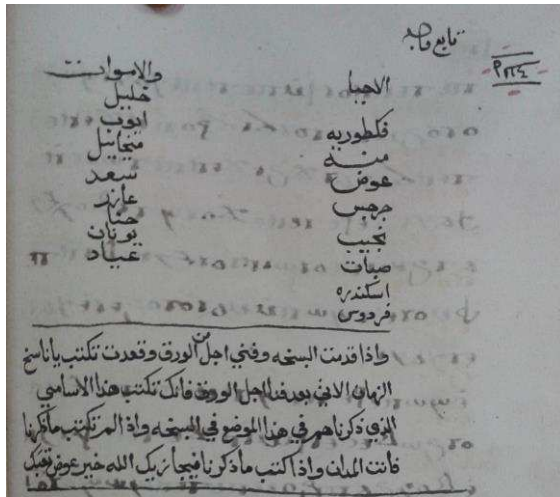 تابع واحد
الاحيا
فكطوريه
منه
عوض
جرجس
نجيب
صبات
اسكندره
فردوس
والاموات
خليل
ايوب
ميخاييل
سعد
عايد
حنا
يونان
عياد
واذا قدمت النسخه وفني اجل من الورق وقعدت تكتب ياناسخ
الزمان الاتي بعدفنا اجل الورق فانك تكتب هذا الاسامي
الذي ذكرناهم في هذا الموضوع في النسخه واذا لم تكتب ماذكرنا
فانت المدان واذا كتبت ماذكرنا فيجازيك الله خير عوض تعبك